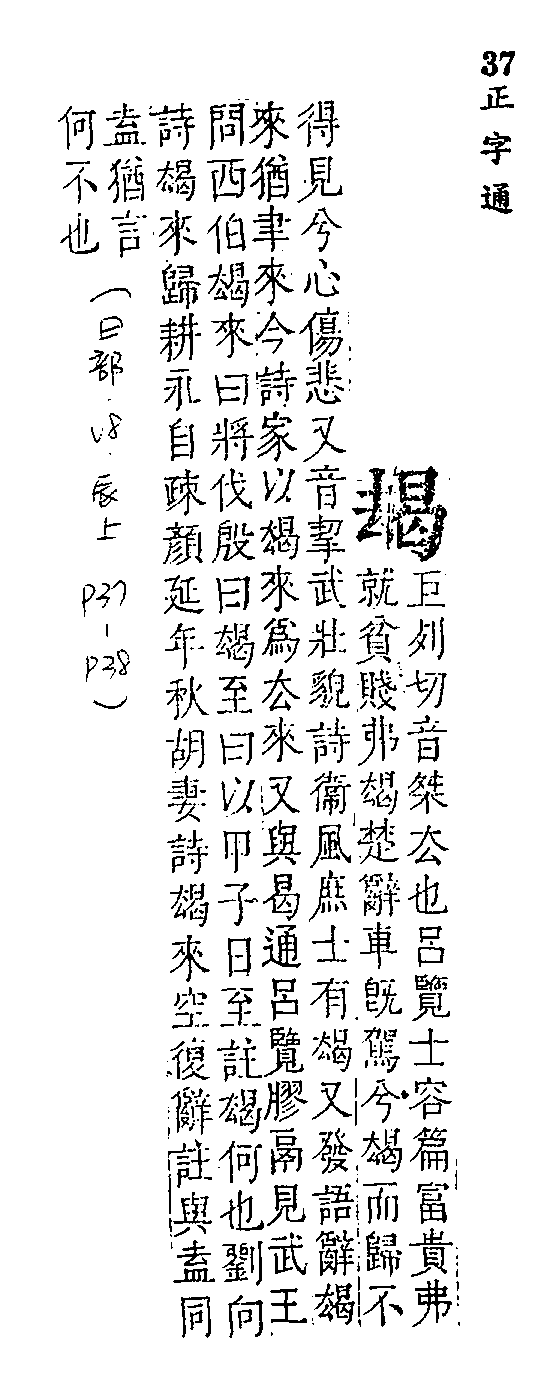 37
正字通
朅
巨列切音桀厺也呂覽士容篇富貴弗
就貧賤弗朅楚辭車旣駕兮朅而歸不
得見兮心傷悲又音挈武壯貌詩衞風庶士有朅又發語辭朅
來猶聿來今詩家以朅來爲厺來又與曷通呂覽膠鬲見武王
問西伯朅來曰將伐殷曰朅至曰以甲子日至註朅何也劉向
詩朅來歸耕永自疎顏延年秋胡妻詩朅來空復辭註與盍同
盍猶言
何不也
(曰部.v8.辰上 P37-P38)